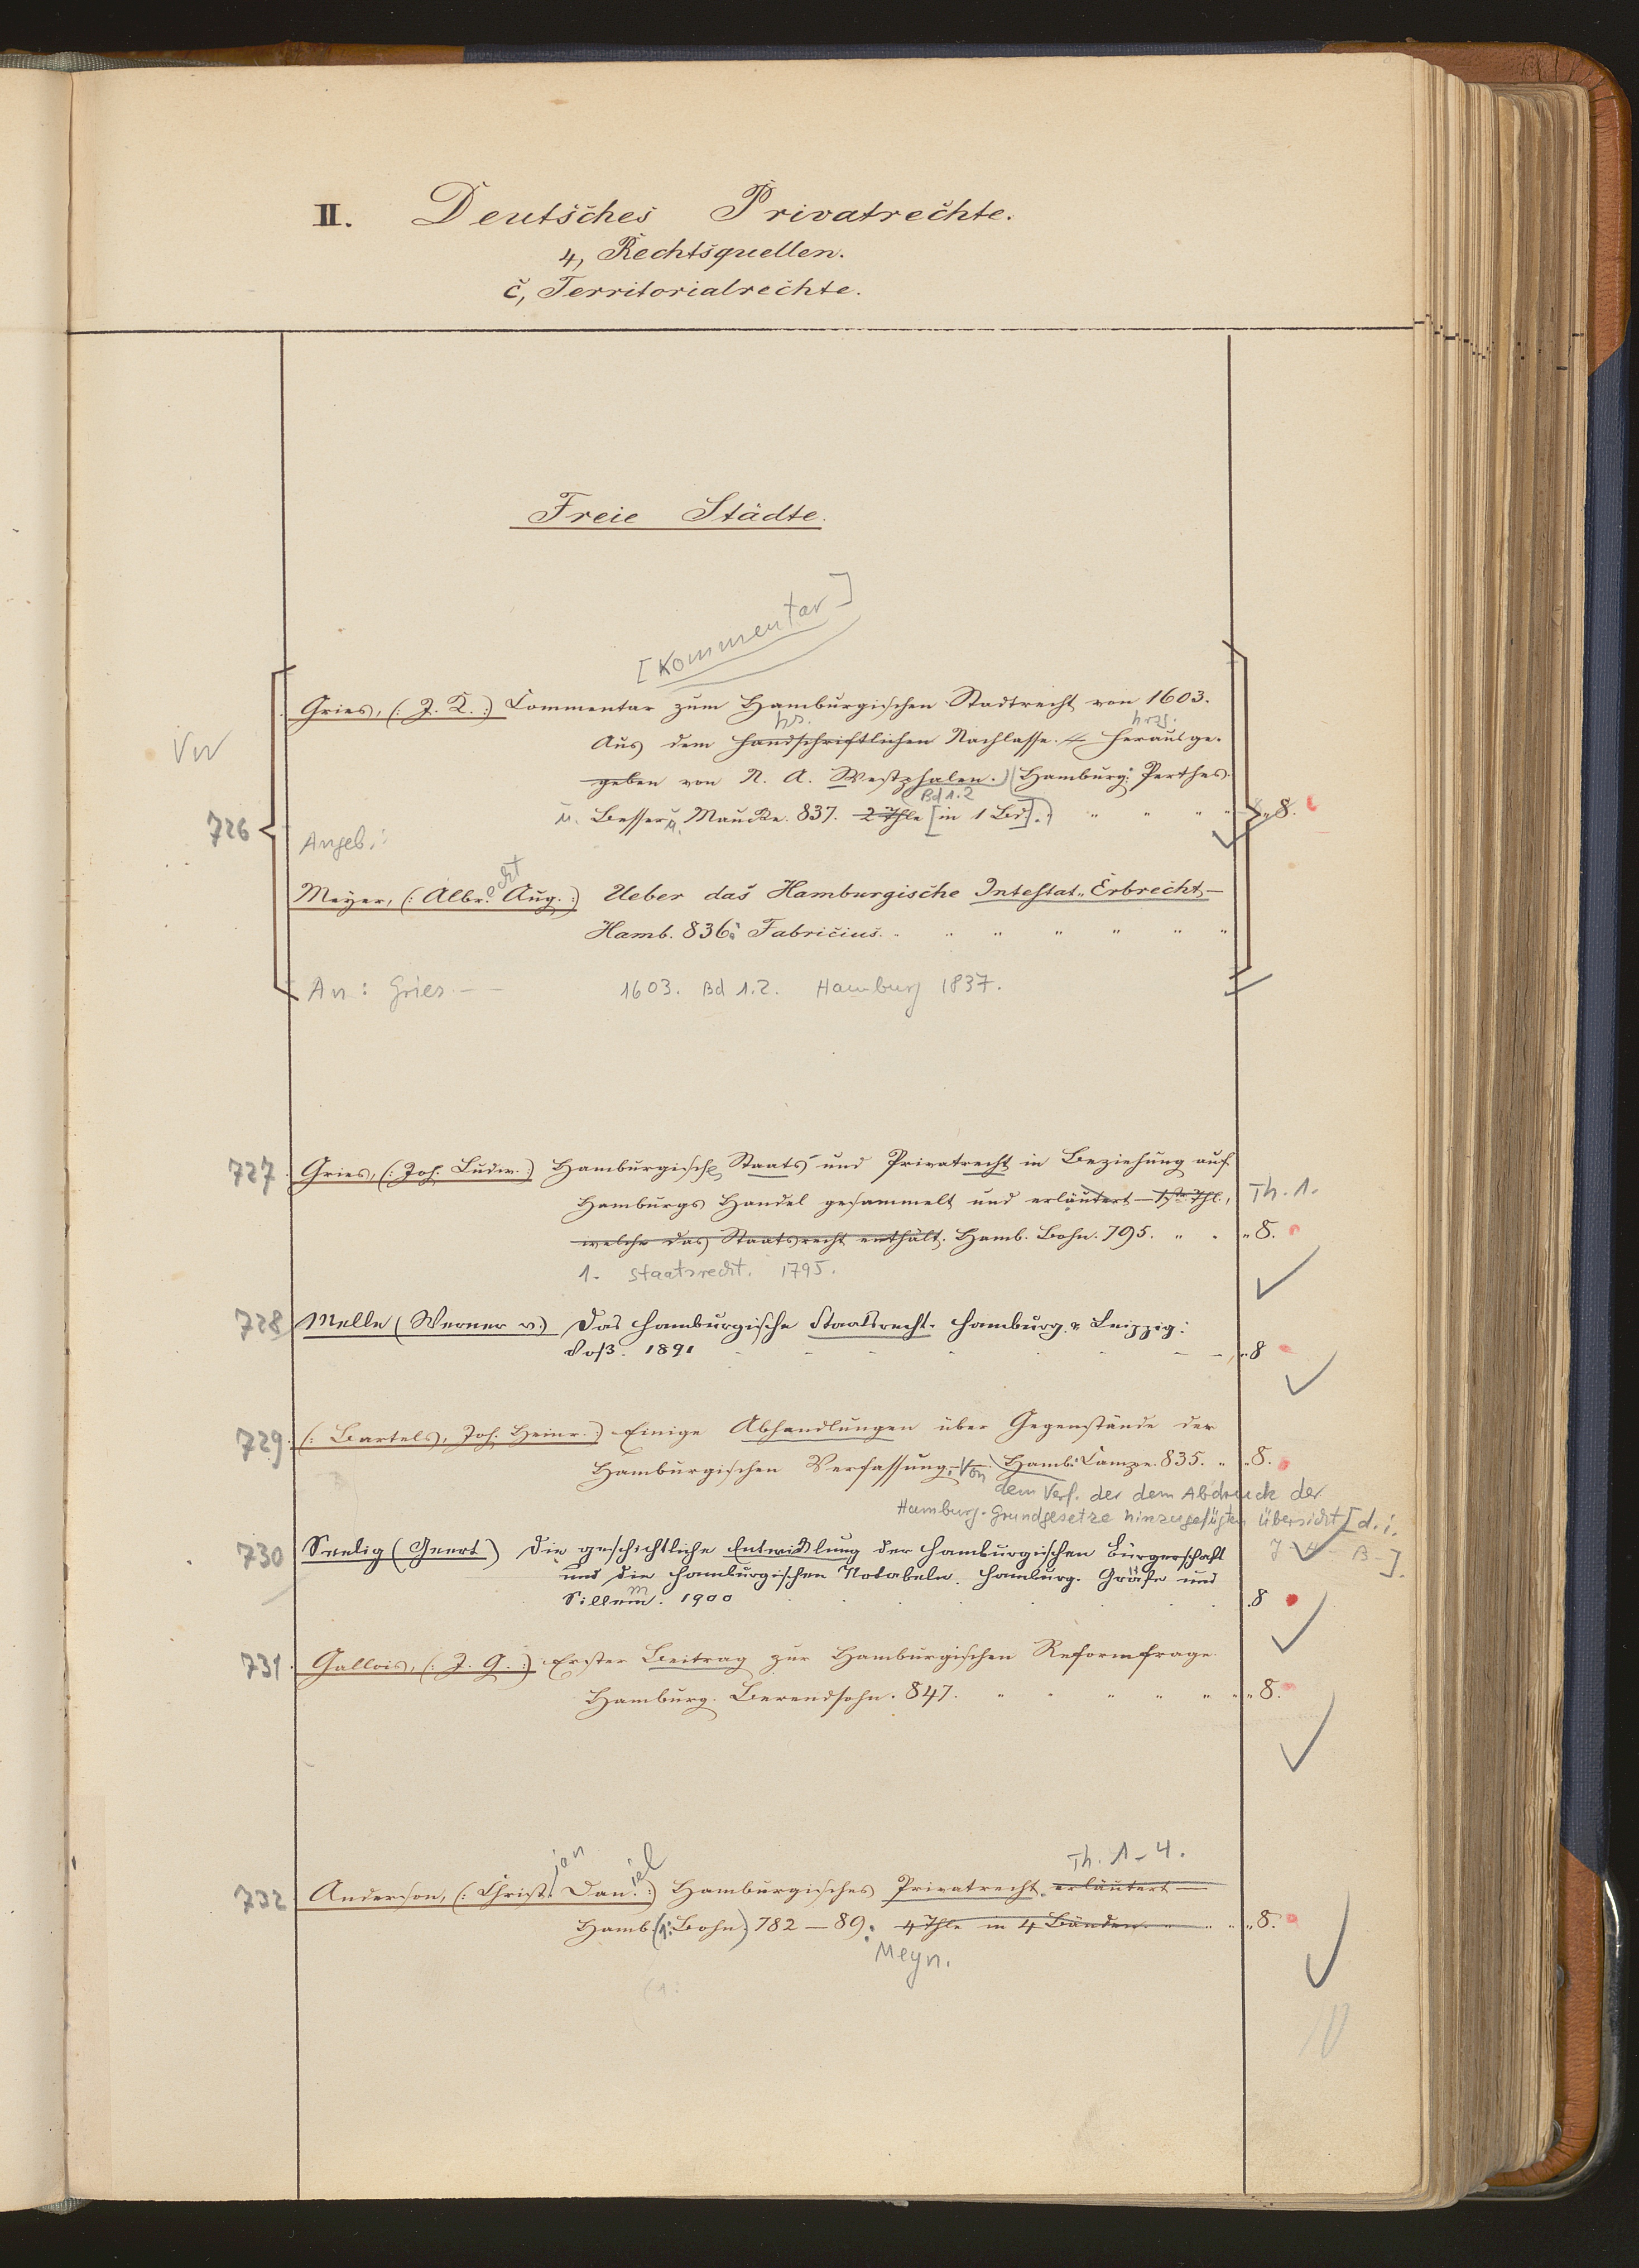 II. Deutsches Privatrechte.
4, Rechtsquellen.
c, Territorialrechte.
Freie Städte.
[Kommentar]
Gries, (: J. K. :) Commentar zum Hamburgischen Stadtrecht von 1603.
hs. hrsg.
Aus dem handschriftlichen Nachlasse herausge-
Vw
geben von N. A. Westphalen. (Hamburg: Perthes.
Bd 1.2
726 u. Besser u. Mauke. 837. 2 Thle [in 1 Bd].) " " " " 8.
Angeb.:
Meyer, (: Albrecht Aug. :) Ueber das Hamburgische Intestat-Erbrecht.—
Hamb. 836: Fabricius. " " " " " " "
An: Gries — 1603. Bd 1.2. Hamburg 1837.
727. Gries, (: Joh. Ludw. :) Hamburgische Staats- und Privatrecht in Beziehung auf
Hamburgs Handel gesammelt und erläutert — 1ster Thl., Th. 1.
welcher das Staatsrecht enthält. Hamb. Bohn. 795. " " " 8.
1. Staatsrecht. 1795.
728 Melle (Werner v.) Das hamburgische Staatsrecht. Hamburg & Leipzig:
Voß. 1891 " 8
729. (: Bartels, Joh. Heinr. :) Einige Abhandlungen über Gegenstände der
Hamburgischen Verfassung. Von Hamb: Campe. 835. " " 8.
dem Verf. der dem Abdruck der
Hamburg. Grundgesetze hinzugefügten Übersicht [d. i.
J- H- B-].
730 Seelig (Geert) Die geschichtliche Entwicklung der hamburgischen Bürgerschaft
und die hamburgischen Notabeln. Hamburg. Gräfe und
Sillem. 1900 8
731. Gallois, (: J. G. :) Erster Beitrag zur Hamburgischen Reformfrage.
Hamburg. Berendsohn. 847. " " " " " " 8.
Th. 1-4.
732 Anderson, (: Christian Daniel :) Hamburgisches Privatrecht. erläutert —
Hamb (1: Bohn) 782 — 89. 4 Thle in 4 Bänden. " " " " 8.
Meyn.
(1: